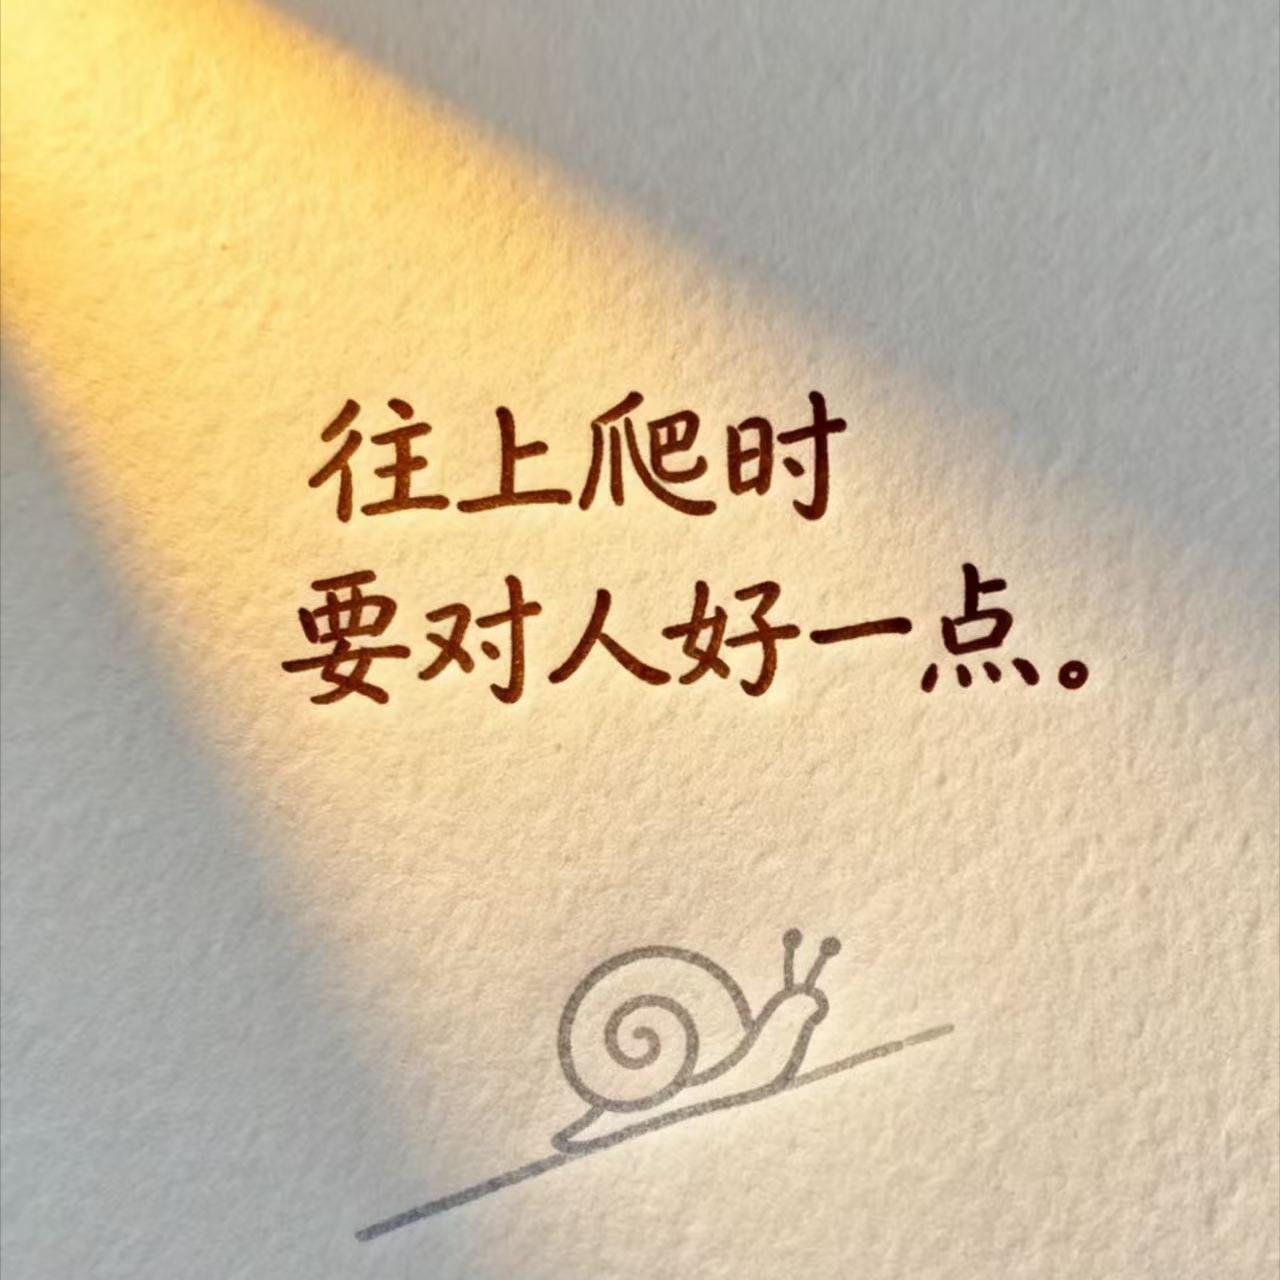 往上爬时
要对人好一点。